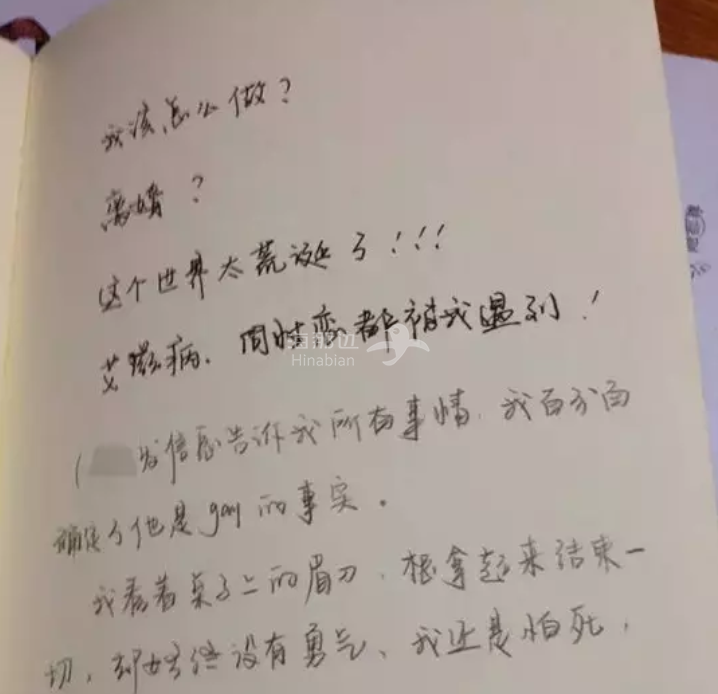 我该怎么做？
离婚？
这个世界太荒诞了！！！
艾滋病、同性恋都被我遇到！
（ 发信息告诉我所有事情，我百分百
确定了他是gay的事实。
我看着桌子上的眉刀，想拿起来结束一
切，却始终没有勇气、我还是怕死，
海那边
Hinabian